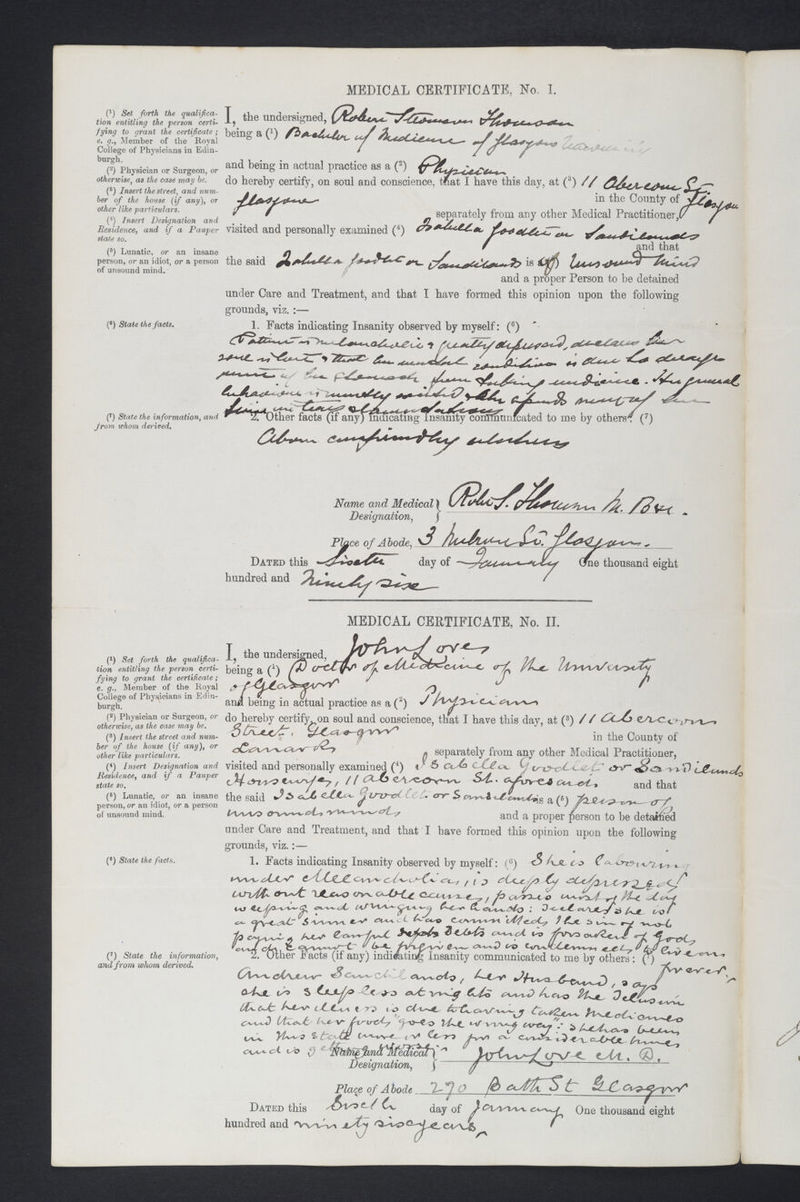 MEDICAL CERTIFICATE, No. I.
(1) Set forth the qualifica-
tion entitling the person certi-
fying to grant the certificate;
e. g., Member of the Royal
College of Physicians in Edin-
burgh.
(2) Physician or Surgeon, or
otherwise, as the case may be.
(3) Insert the street, and num-
ber of the house (if any), or
other like particulars.
(4) Insert Designation and
Residence, and if a Pauper
state so.
(5) Lunatic, or an insane
person, or an idiot, or a person
of unsound mind.
(6) State the facts.
(7) State the information, and
from whom derived.
I, the undersigned, Robert Thomson
being a (1) Bachelor of Medicine of Glasgow University
and being in actual practice as a (2) Physician
do hereby certify, on soul and conscience, that I have this day, at (3) 11 Abercorn St.
Glasgow in the County of
separately from any other Medical Practitioner,
visited and personally examined (4) Isabella Goodlet or Sandilands
and that
the said Isabella Goodlet or Sandilands is (5) Unsound Mind
and a proper Person to be detained
under Care and Treatment, and that I have formed this opinion upon the following
grounds, viz. :—
1. Facts indicating Insanity observed by myself: (6)
Patient is melancholic & greatly depressed, declares her
soul is lost & that her condition is due to
of her stomach from taking medicine. Her general
2. Other facts (if any) indicating Insanity communicated to me by others: (7)
Above confirmed by
Name and Medical Designation, Robt S. Thomson M. B &c.
Place of Abode, 3 St. Glasgow.
DATED this Sixth day of January One thousand eight
hundred and Ninety six
MEDICAL CERTIFICATE, No. II.
(1) Set forth the qualifica-
tion entitling the person certi-
fying to grant the certificate;
e. g., Member of the Royal
College of Physicians in Edin-
burgh.
(2) Physician or Surgeon, or
otherwise, as the case may be.
(3) Insert the street and num-
ber of the house (if any), or
other like particulars.
(4) Insert Designation and
Residence, and if a Pauper
state so.
(5) Lunatic, or an insane
person, or an idiot, or a person
of unsound mind.
(6) State the facts.
(7) State the information,
and from whom derived.
I, the undersigned, John Love
being a (1) Doctor of Medicine of the University
of Glasgow
and being in actual practice as a (2) Physician
do hereby certify, on soul and conscience, that I have this day, at (3) 11 Abercorn
Street, Glasgow in the County of
Lanark separately from any other Medical Practitioner,
visited and personally examined (4) Isabella Goodlet or Sandilands
Housewife, 11 Abercorn St. aforesaid, and that
the said Isabella Goodlet or Sandilands is a (5) person of
unsound mind, and a proper person to be detained
under Care and Treatment, and that I have formed this opinion upon the following
grounds, viz. :—
1. Facts indicating Insanity observed by myself: (6) She is labouring
under Melancholia, is deeply depressed
without reasonable cause, passes most of the day
weeping and wringing her hands: Declares she is
a great Sinner and has committed the sin of not
paying her lawful debts and is forsaken of God,
and she cannot be forgiven and is condemned to live on
for ever.
2. Other Facts (if any) indicating Insanity communicated to me by others: (7)
Andrew Sandilands, her Husband, says
she is sleepless at nights and has the Delusion
that her illness is due to having taken Medicines
and that her food goes the wrong way: She has been
in this State more or less for a considerable time
and is getting worse.
Name and Medical Designation, John Love M. D.
Place of Abode 290 Bath St Glasgow
DATED this Sixth day of January One thousand eight
hundred and ninety six years